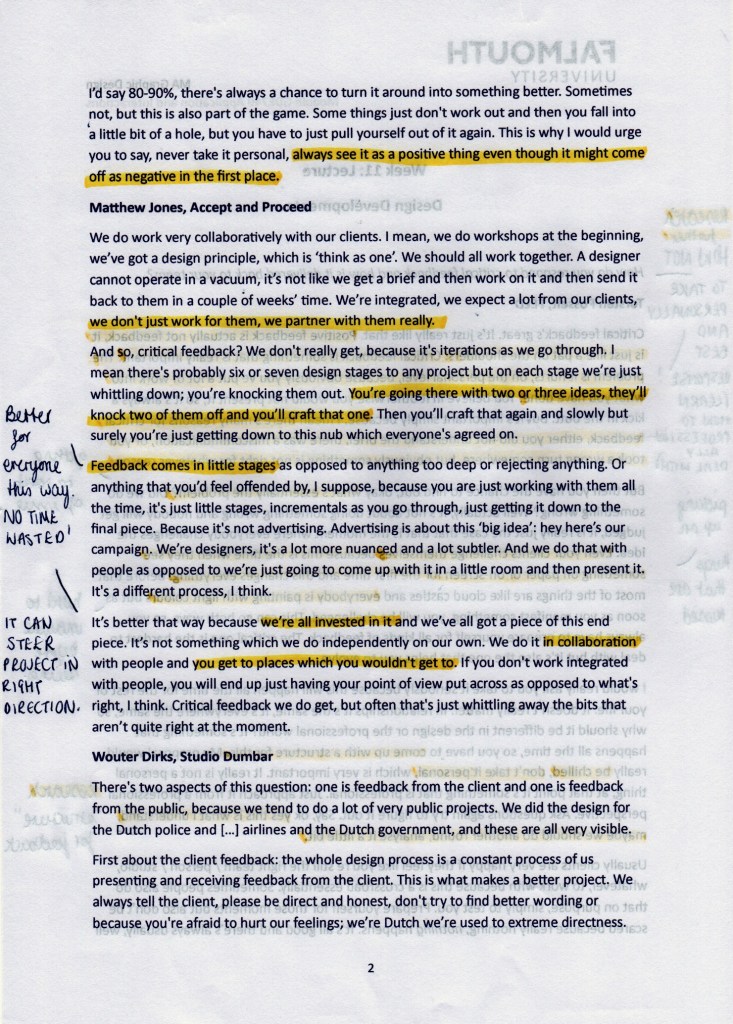 FALMOUTH
UNIVERSITY
MA Graphic Design
I'd say 80-90%, there's always a chance to turn it around into something better. Sometimes
not, but this is also part of the game. Some things just don't work out and then you fall into
a little bit of a hole, but you have to just pull yourself out of it again. This is why I would urge
you to say, never take it personal, always see it as a positive thing even though it might come
off as negative in the first place.
Week 11: Lecture
Matthew Jones, Accept and Proceed
Design Development
We do work very collaboratively with our clients. I mean, we do workshops at the beginning,
we've got a design principle, which is 'think as one'. We should all work together. A designer
cannot operate in a vacuum, it's not like we get a brief and then work on it and then send it
back to them in a couple of weeks' time. We're integrated, we expect a lot from our clients,
we don't just work for them, we partner with them really.
And so, critical feedback? We don't really get, because it's iterations as we go through. I
mean there's probably six or seven design stages to any project but on each stage we're just
whittling down; you're knocking them out. You're going there with two or three ideas, they'll
knock two of them off and you'll craft that one. Then you'll craft that again and slowly but
surely you're just getting down to this nub which everyone's agreed on.
Better
for
everyone
this way.
NO TIME
WASTED!
Feedback comes in little stages as opposed to anything too deep or rejecting anything. Or
anything that you'd feel offended by, I suppose, because you are just working with them all
the time, it's just little stages, incrementals as you go through, just getting it down to the
final piece. Because it's not advertising. Advertising is about this 'big idea': hey here's our
campaign. We're designers, it's a lot more nuanced and a lot subtler. And we do that with
people as opposed to we're just going to come up with it in a little room and then present it.
It's a different process, I think.
IT CAN
STEER
PROJECT IN
RIGHT
DIRECTION.
It's better that way because we're all invested in it and we've all got a piece of this end
piece. It's not something which we do independently on our own. We do it in collaboration
with people and you get to places which you wouldn't get to. If you don't work integrated
with people, you will end up just having your point of view put across as opposed to what's
right, I think. Critical feedback we do get, but often that's just whittling away the bits that
aren't quite right at the moment.
Wouter Dirks, Studio Dumbar
There's two aspects of this question: one is feedback from the client and one is feedback
from the public, because we tend to do a lot of very public projects. We did the design for
the Dutch police and [...] airlines and the Dutch government, and these are all very visible.
First about the client feedback: the whole design process is a constant process of us
presenting and receiving feedback from the client. This is what makes a better project. We
always tell the client, please be direct and honest, don't try to find better wording or
because you're afraid to hurt our feelings; we're Dutch we're used to extreme directness.
2